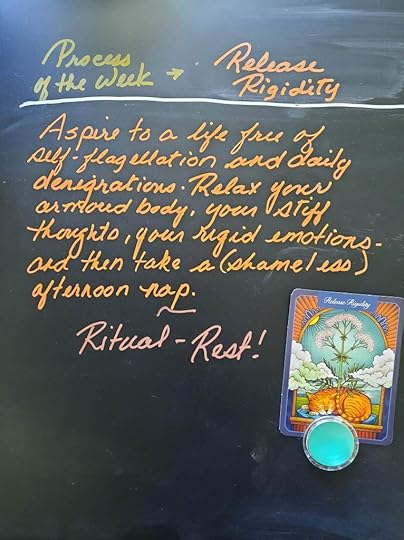 Process
of the Week → Release
Rigidity
Aspire to a life free of
self-flagellation and daily
denigrations. Relax your
armoud body, your stiff
thoughts, your rigid emotions -
and then take a (shameless)
afternoon nap.
Ritual - Rest!
Release Rigidity